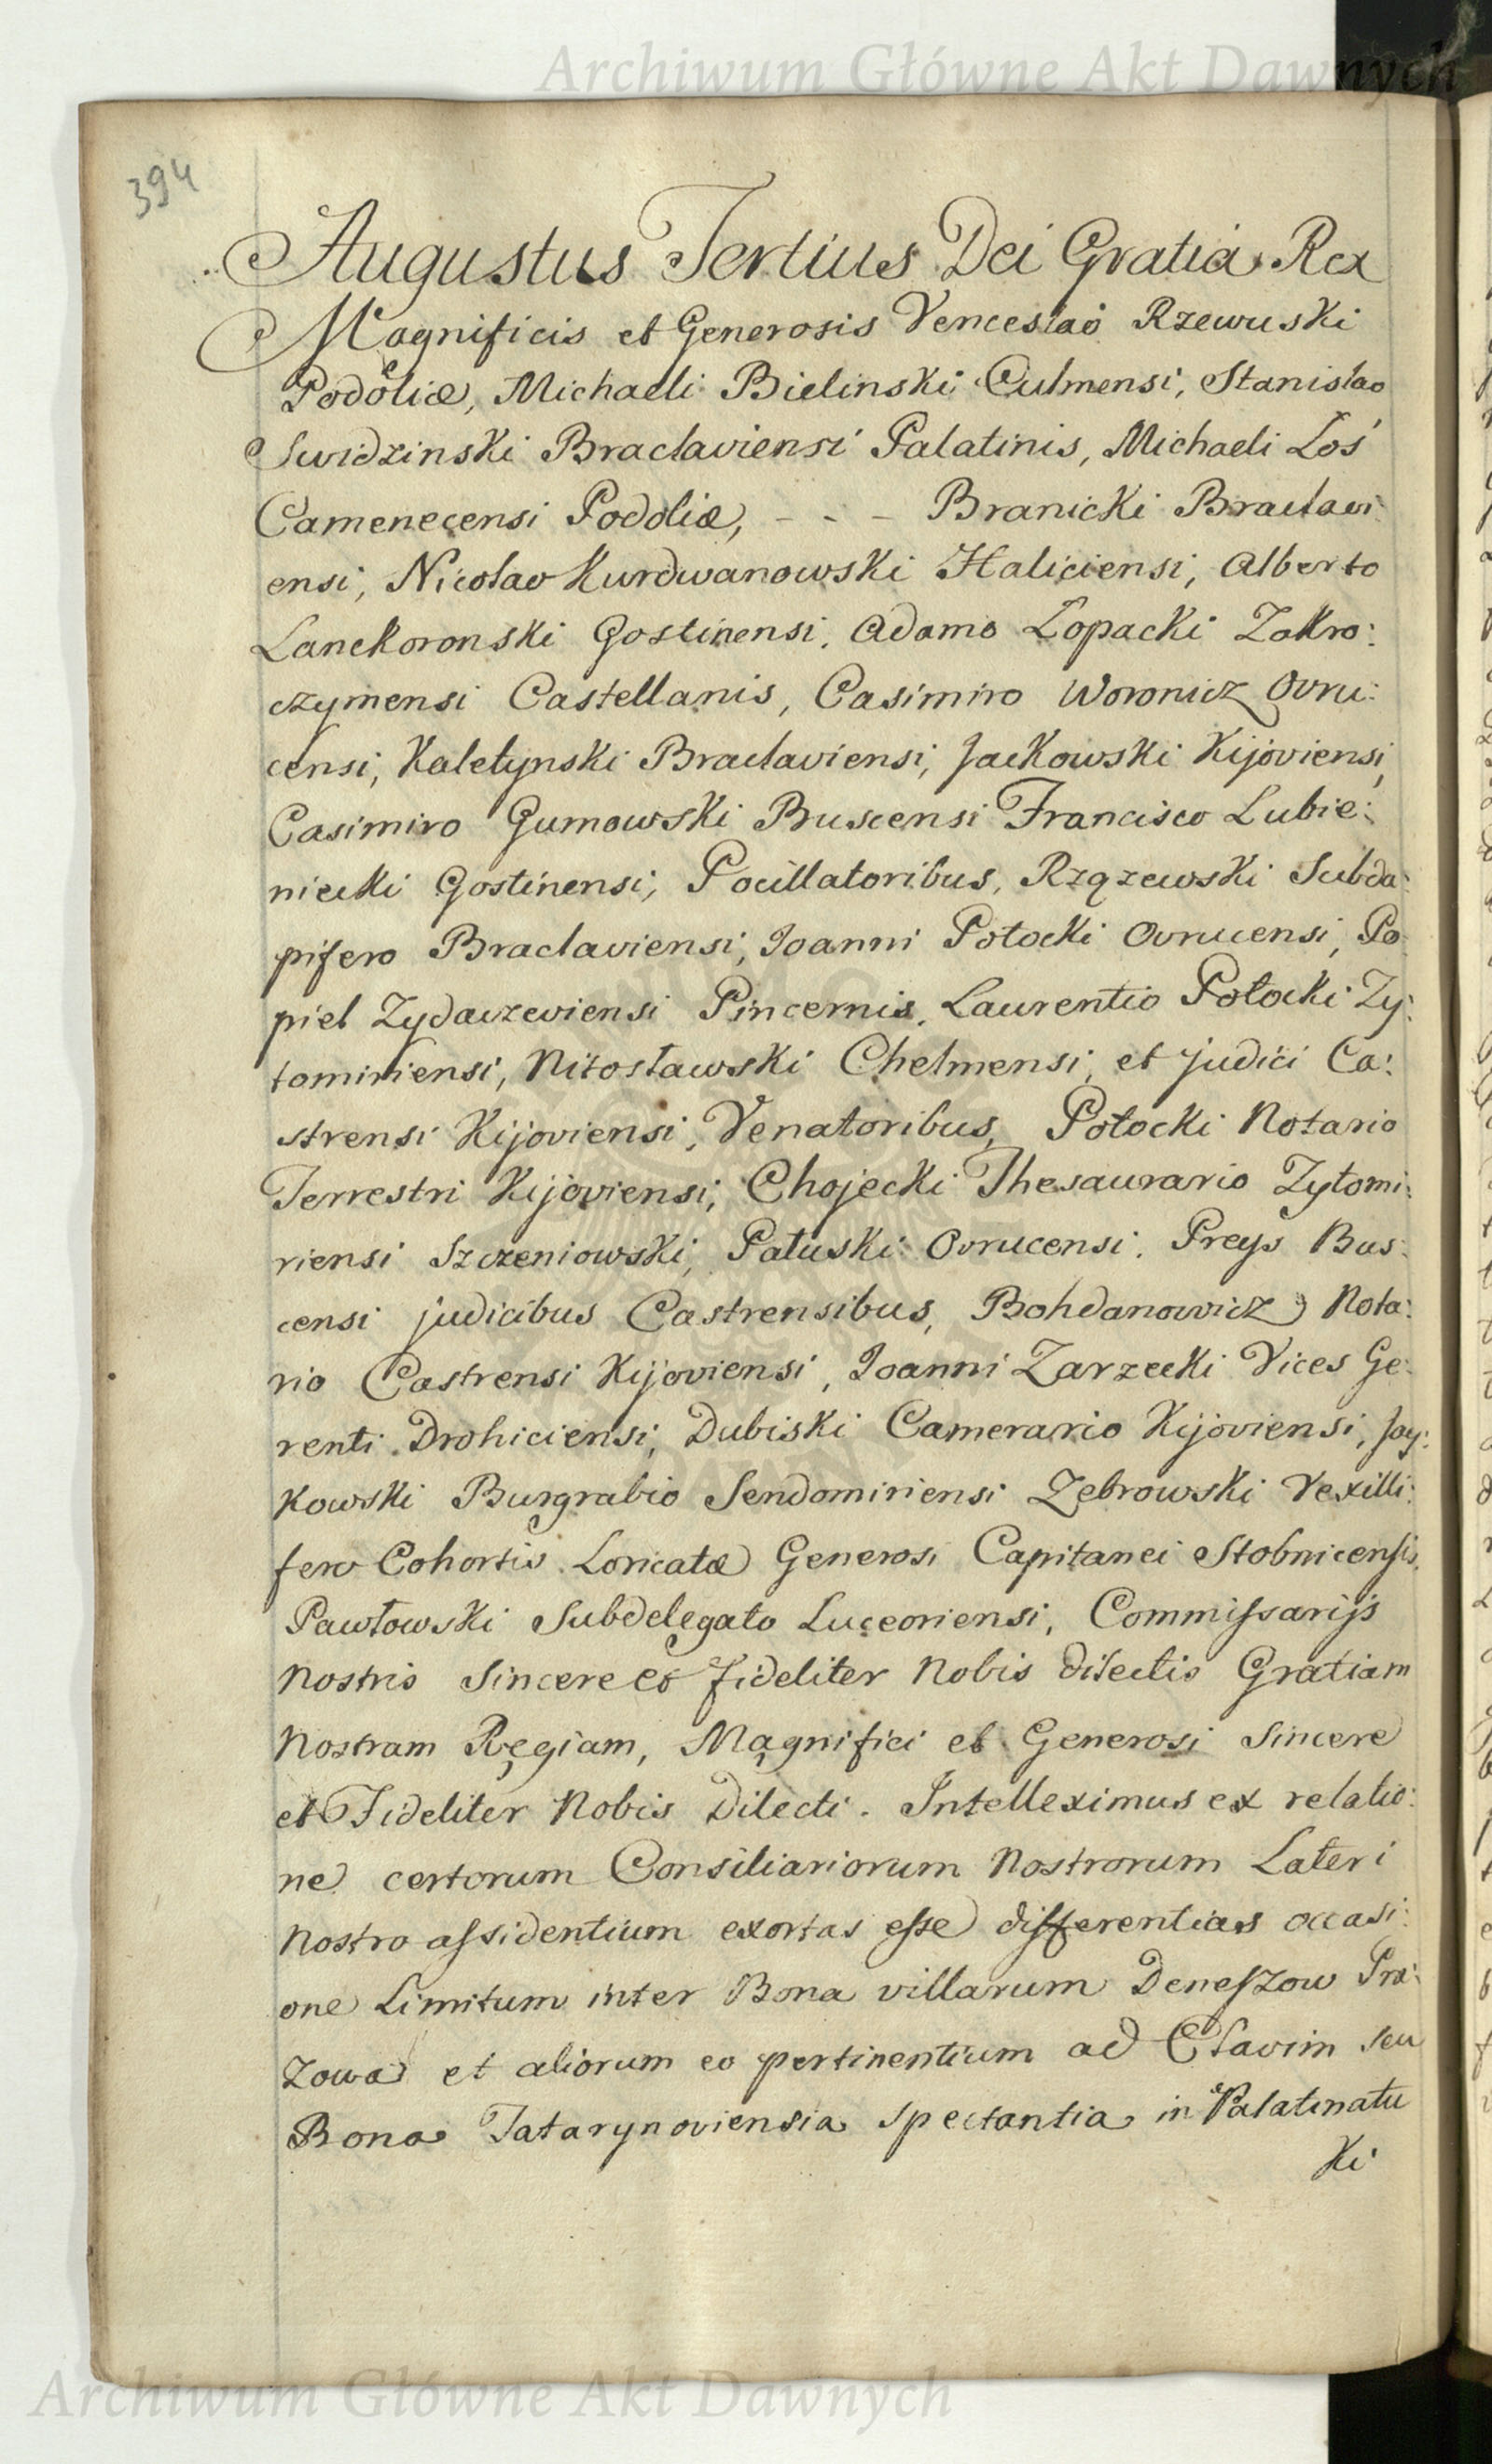 Archiwum Główne Akt Dawnych
394
Augustus Tertius Dei Gratia Rex
Magnificis et Generosis Venceslao Rzewuski
Podoliæ, Michaeli Bielinski Culmensi, Stanislao
Swidzinski Braclaviensi Palatinis, Michaeli Łoś
Camenecensi Podoliæ, - - - Branicki Braclavi:
ensi, Nicolao Kurdwanowski Haliciensi, Alberto
Lanckoronski Gostinensi, Adamo Łopacki Zakro:
czymensi Castellanis, Casimiro Woronicz Ovru:
censi, Kaletynski Braclaviensi, Jackowski Kijoviensi,
Casimiro Gumowski Buscensi Francisco Lubie:
niecki Gostinensi, Pocillatoribus, Rzązewski Subda:
pifero Braclaviensi, Joanni Potocki Ovrucensi, Po:
piel Zydaczeviensi Pincernis, Laurentio Potocki Zy:
tomiriensi, Nitosławski Chelmensi, et judici Ca:
strensi Kijoviensi, Venatoribus, Potocki Notario
Terrestri Kijoviensi, Chojecki Thesaurario Zytomi:
riensi Szczeniowski, Pałuski Ovrucensi, Preys Bus:
censi judicibus Castrensibus, Bohdanowicz Nota:
rio Castrensi Kijoviensi, Joanni Zarzecki Vices Ge:
renti Drohiciensi, Dubiski Camerario Kijoviensi, Jay:
kowski Burgrabio Sendomiriensi Zebrowski Vexilli:
fero Cohortis Loricatæ Generosi Capitanei Stobnicensis,
Pawłowski Subdelegato Luceoriensi, Commissarijs
Nostris Sincere et fideliter Nobis dilectis Gratiam
Nostram Regiam, Magnifici et Generosi Sincere
et Fideliter Nobis Dilecti. Intelleximus ex relatio:
ne certorum Consiliariorum Nostrorum Lateri
Nostro assidentium exortas esse differentias occasi:
one Limitum inter Bona villarum Deneszow Pra:
zowa et aliorum eo pertinentium ad Clavim seu
Bona Tatarynoviensia spectantia in Palatinatu
Ki
Archiwum Główne Akt Dawnych